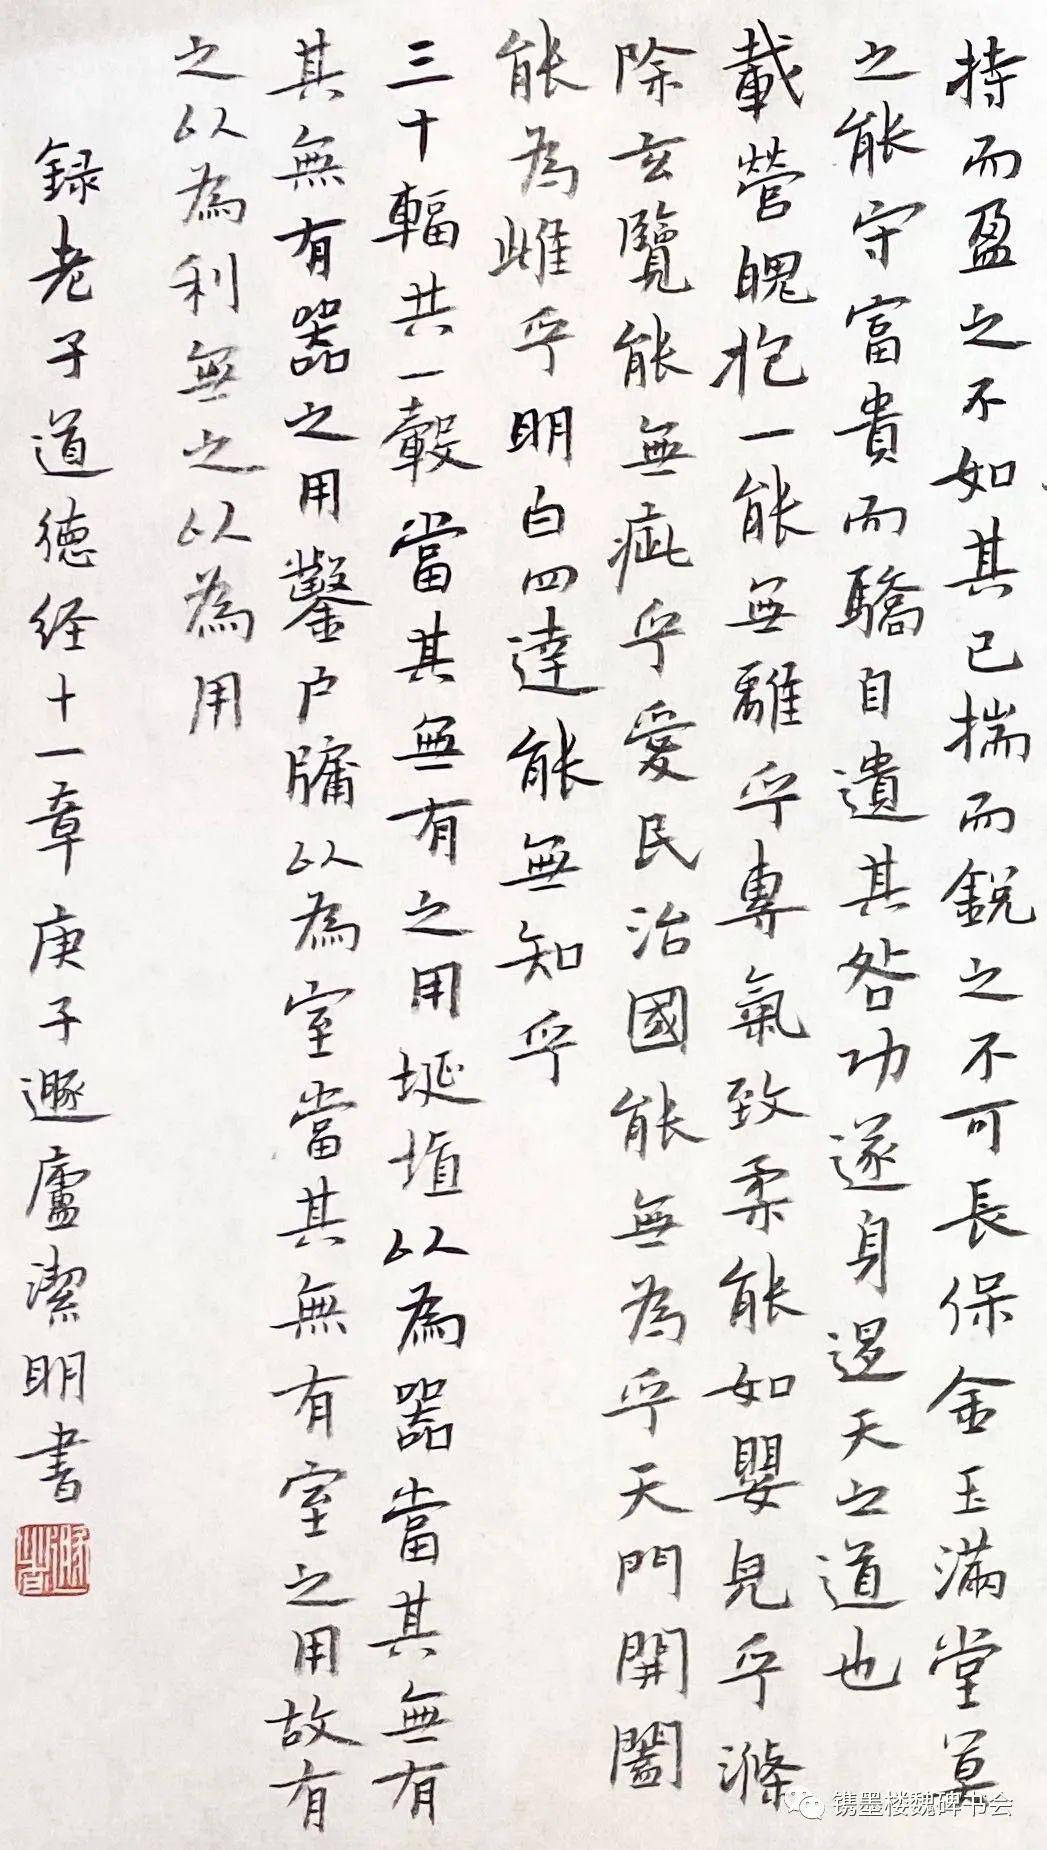 持而盈之不如其已揣而鋭之不可長保金玉滿堂莫
之能守富貴而驕自遺其咎功遂身退天之道也
載營魄抱一能無離乎專氣致柔能如嬰兒乎滌
除玄覽能無疵乎愛民治國能無為乎天門開闔
能為雌乎明白四達能無知乎
三十輻共一轂當其無有之用埏埴以為器當其無有
其無有器之用鑿户牖以為室當其無有室之用故有
之以為利無之以為用
録老子道德经十一章庚子遯廬潔明書
镌墨楼魏碑书会